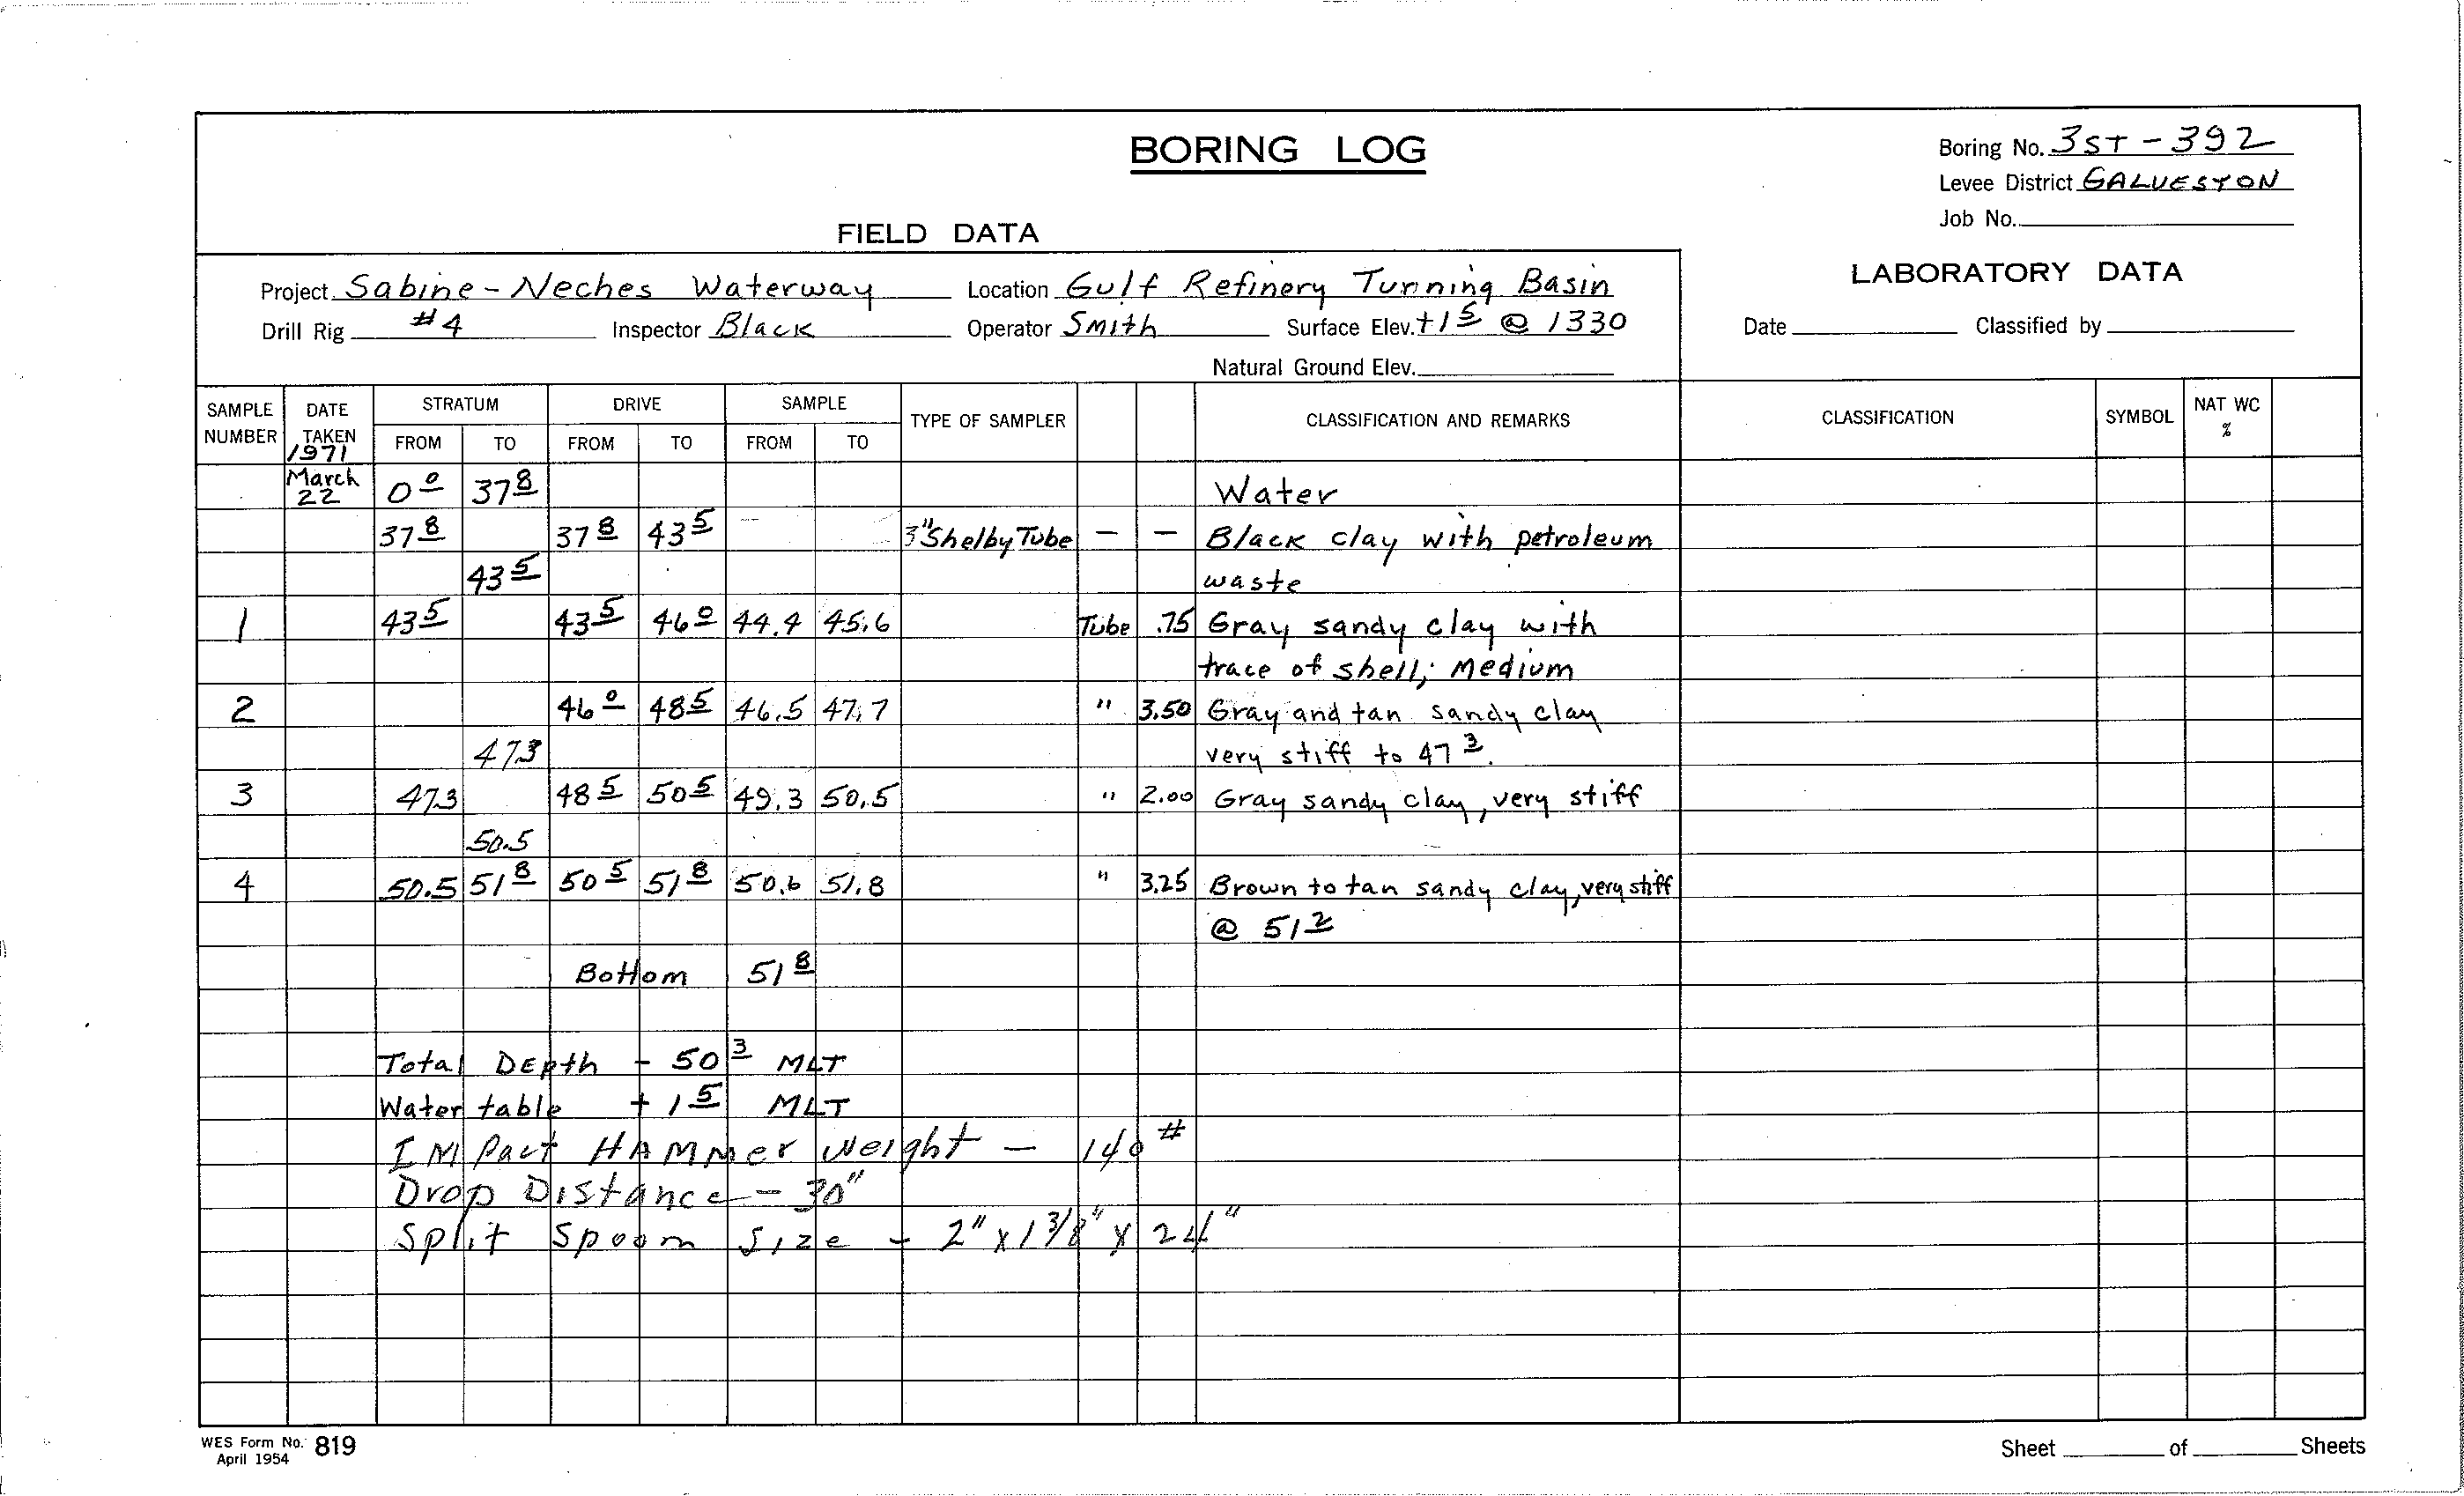 BORING LOG
Boring No. 3ST - 392
Levee District GALVESTON
Job No.
FIELD DATA
LABORATORY DATA
Project Sabine - Neches Waterway Location Gulf Refinery Turning Basin
Drill Rig #4 Inspector Black Operator Smith Surface Elev. +1 5 @ 1330
Date Classified by
Natural Ground Elev.
SAMPLE NUMBER DATE TAKEN STRATUM FROM TO DRIVE FROM TO SAMPLE FROM TO TYPE OF SAMPLER CLASSIFICATION AND REMARKS CLASSIFICATION SYMBOL NAT WC %
1971
March 22 0 0 37 8 Water
37 8 37 8 43 5 3" Shelby Tube - - Black clay with petroleum
43 5 waste
1 43 5 43 5 46 0 44.4 45.6 Tube .75 Gray sandy clay with
trace of shell; Medium
2 46 0 48 5 46.5 47.7 " 3.50 Gray and tan sandy clay
47.3 very stiff to 47 3.
3 47.3 48 5 50 5 49.3 50.5 " 2.00 Gray sandy clay, very stiff
50.5
4 50.5 51 8 50 5 51 8 50.6 51.8 " 3.25 Brown to tan sandy clay, very stiff
@ 51 2
Bottom 51 8
Total DEpth - 50 3 MLT
Water table + 1 5 MLT
IMPact HAMMer weight - 140 #
Drop Distance - 30"
Split Spoon Size - 2" x 1 3/8" x 24"
WES Form No. 819
April 1954
Sheet of Sheets